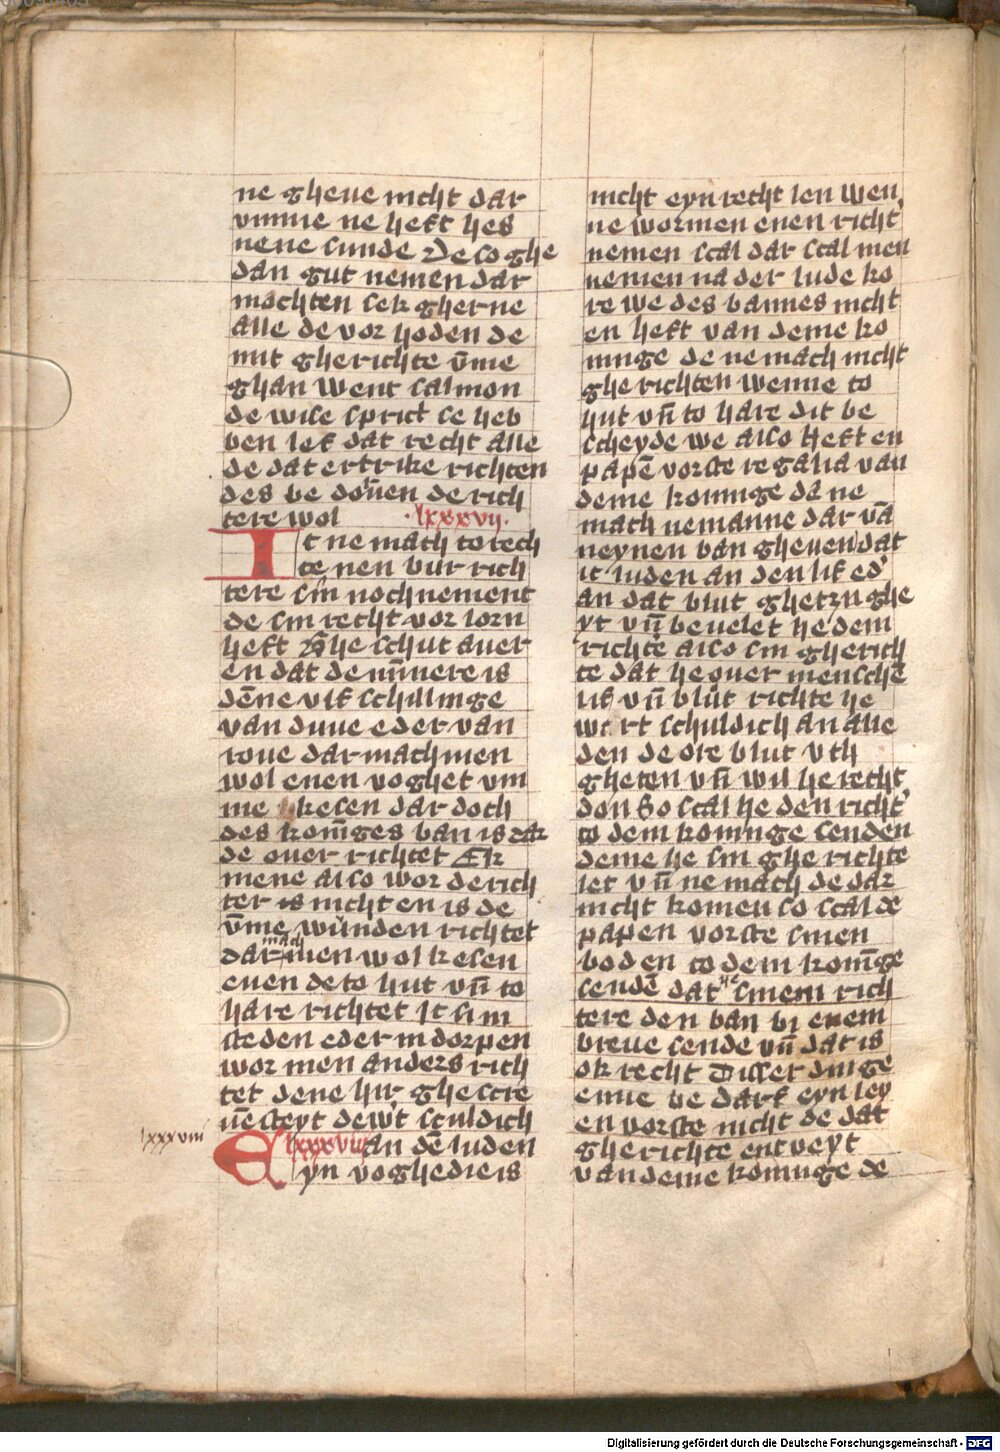 ne gheue nicht dar
vmme ne heft hes
nene sunde De so ghe
dan gut nemen dar
mochten sek gherne
alle de vor hoden de
mit gherichte v̄me
ghan went salmon
de wise sprict se heb
ben lef dat recht alle
de dat ertrike richten
des be doruen de rich
tere wol ·lxxxvij·
It ne mach to rech
te nen bur rich
tere sin noch nement
de sin recht vor lorn
heft he schut auer
en dat de minnere is
dēne vif schillinge
van duue eder van
roue dar mach men
wol enen voghet vm
me kesen dar doch
des konīges ban is dar
de ouer richtet Ek
mene also wor de rich
ter is nicht en is de
v̄me wunden richtet
dar mach men wol kesen
enen de to hut vn̄ to
hare richtet it si in
steden eder in dorpen
wor men anders rich
tet dene hir ghescre
uē steyt de wͥt sculdich
lxxxviii
lxxxviii an dē luden
Eyn voghedie is
nicht eyn recht len wen
ne wor men enen richt'
nemen scal dar scal men
nemen na der lude ko
re we des bannes nicht
en heft van deme ko
ninge de ne mach nicht
gherichten wenne to
hut vn̄ to hare dit be
scheyde we also heft en
papē vorste regalia van
deme koninge da ne
mach nemanne dar vā
neynen ban gheuen dat
it luden an den lif ed'
an dat blut ghet
yt vn̄ beuelet he dem
richte also sin gherich
te dat he ouer menschē
lif vn̄ blut richte he
wert schuldich an alle
den de ore blut vth
gheten vn̄ wil he recht
don So scal he den richt'
to dem koninge senden
deme he sin gherichte
let vn̄ ne mach de dar
nicht komen so scal de
papen vorste sinen
boden to dem konīge
sendē dat he sinem rich
tere den ban bi enem
breue sende vn̄ dat is
ok recht Disser dinge
enne be darf eyn ley
en vorste nicht de dat
gherichte entveyt
van deme koninge de
Digitalisierung gefördert durch die Deutsche Forschungsgemeinschaft - DFG